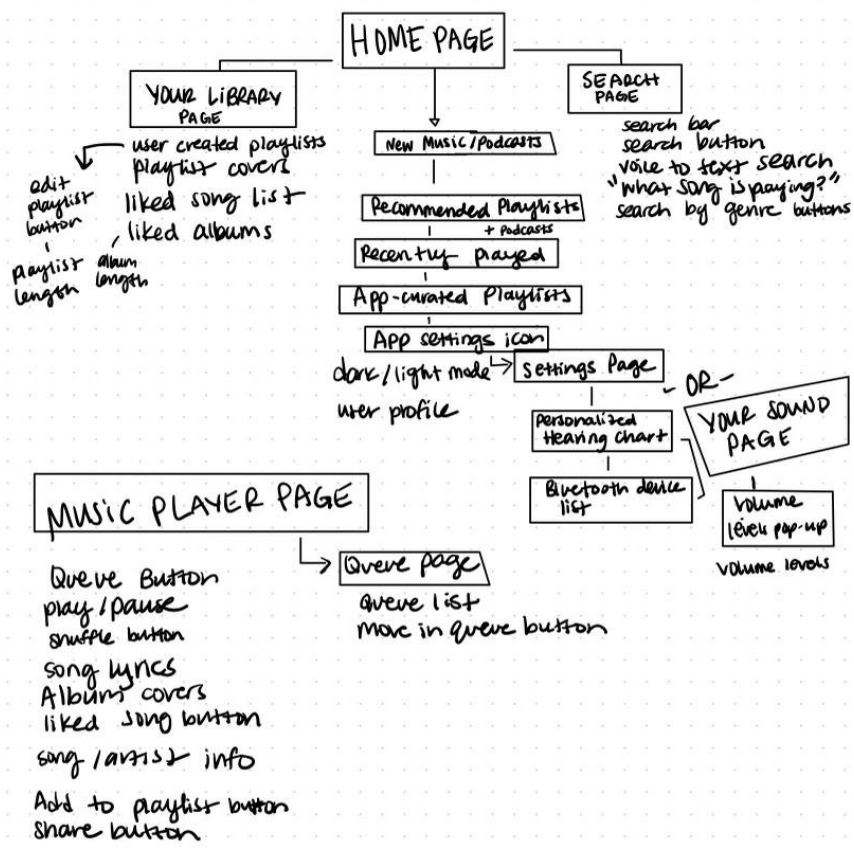 HOME PAGE
YOUR LIBRARY
PAGE
user created playlists
playlist covers
liked song list
liked albums
edit
playlist
button
playlist
length
album
length
New Music/Podcasts
Recommended Playlists
+ Podcasts
Recently played
App-curated Playlists
App settings icon
dark/light mode
user profile
Settings Page
Personalized
Hearing chart
Bluetooth device
list
- OR -
YOUR SOUND
PAGE
Volume
levels pop-up
volume levels
SEARCH
PAGE
search bar
search button
voice to text search
"What song is playing?"
search by genre buttons
MUSIC PLAYER PAGE
Queue Button
play/pause
shuffle button
song lyrics
Album covers
liked song button
song/artist info
Add to playlist button
share button
Queue page
queue list
move in queue button